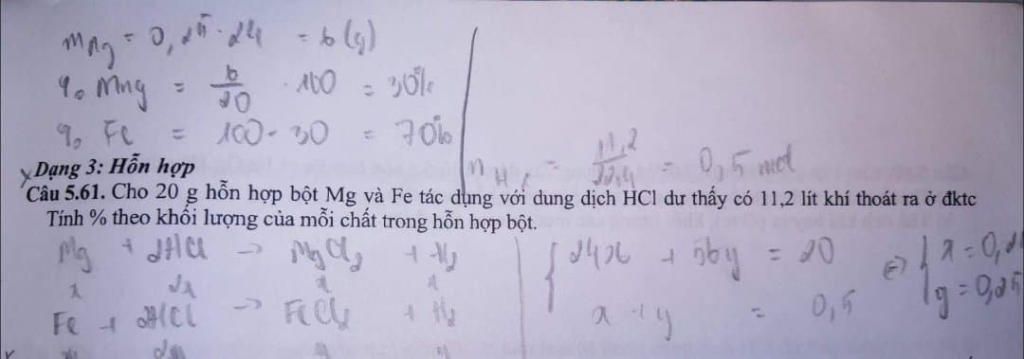 mMg = 0,25 . 24 = 6 (g)
% Mmg = 6/20 . 100 = 30%
% Fe = 100 - 30 = 70%
nH2 = 11,2/22,4 = 0,5 mol
Dạng 3: Hỗn hợp
Câu 5.61. Cho 20 g hỗn hợp bột Mg và Fe tác dụng với dung dịch HCl dư thấy có 11,2 lít khí thoát ra ở đktc
Tính % theo khối lượng của mỗi chất trong hỗn hợp bột.
Mg + 2HCl → MgCl2 + H2
x 2x x x
Fe + 2HCl → FeCl2 + H2
24x + 56y = 20
x + y = 0,5
⇔ x = 0,2
y = 0,25